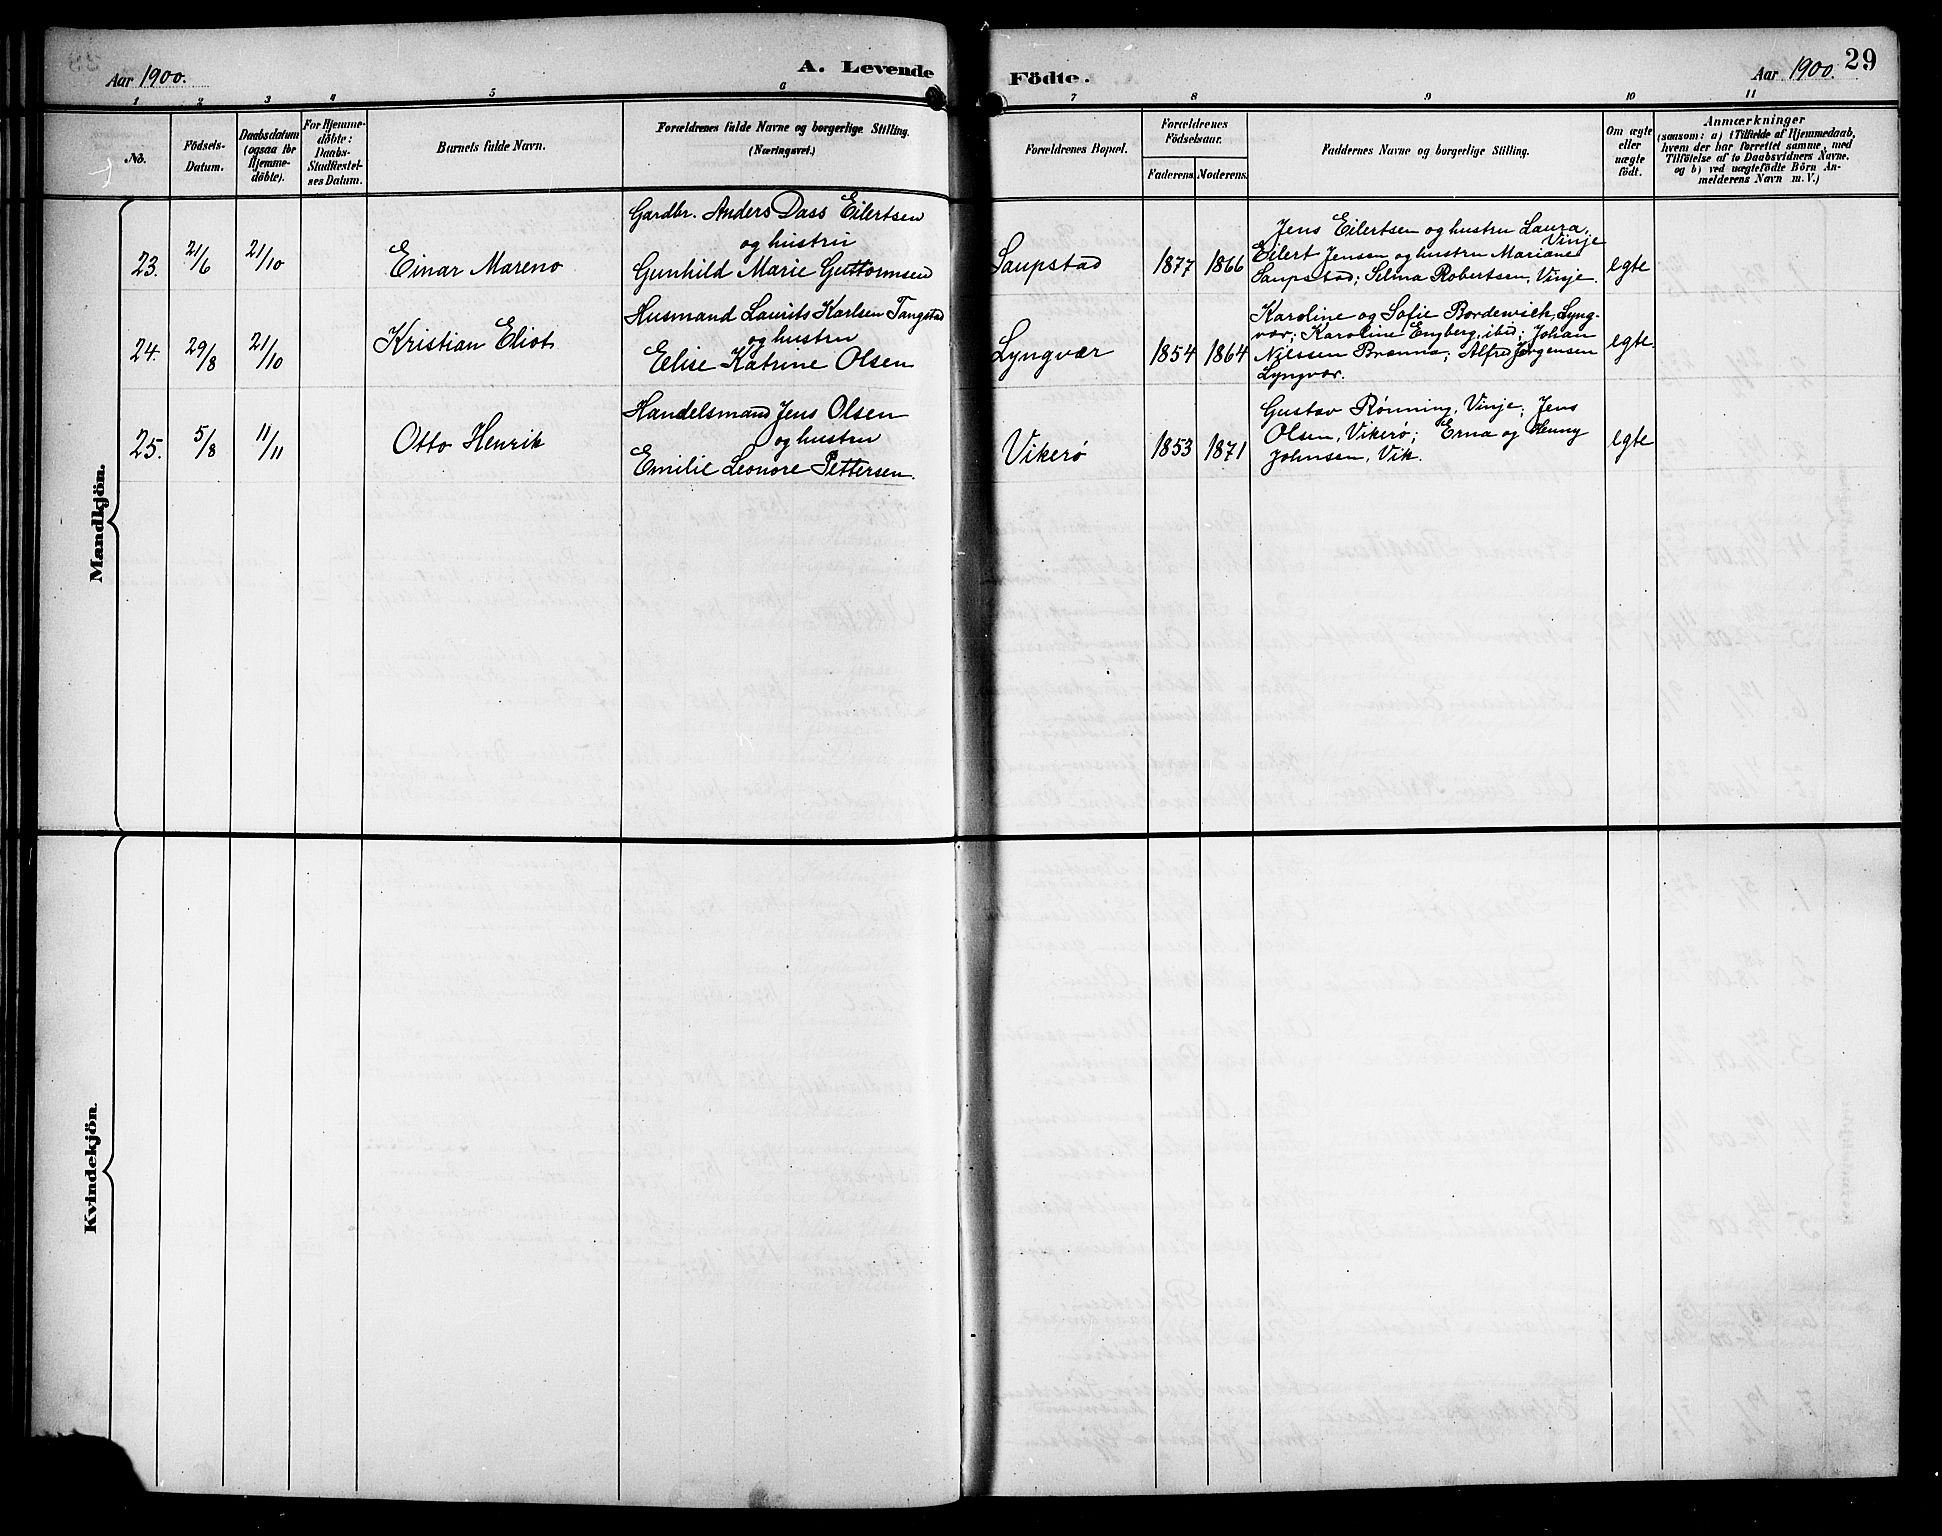 Aar 1900.
A. Levende Födte.
Aar 1900.
29
1 2 3 4 5 6 7 8 9 10 11
No.
Födsels-
Datum.
Daabsdatum
(ogsaa for
Hjemme-
döbte).
For Hjemme-
döbte:
Daabs-
Stadfæstel-
ses Datum.
Barnets fulde Navn.
Forældrenes fulde Navne og borgerlige Stilling.
(Næringsvei.)
Forældrenes Bopæl.
Forældrenes
Födselsaar.
Faderens. Moderens.
Faddernes Navne og borgerlige Stilling.
Om ægte
eller
uægte
födt.
Anmærkninger
(saasom: a) i Tilfælde af Hjemmedaab,
hvem der har forrettet samme, med
Tilföielse af to Daabsvidners Navne.
og b) ved uægtefödte Börn An-
melderens Navn m. V.)
Mandkjön.
23. 21/6 21/10 Einar Mareno
Gardbr. Anders Dass Eilertsen
og hustru
Gunhild Marie Guttormsen
Saupstad 1877 1866
Jens Eilertsen og hustru Laura,
Vinje
Eilert Jensen og hustru Mariane
Saupstad; Selma Robertsen, Vinje.
egte
24. 29/8 21/10 Kristian Eliot
Husmand Laurits Karlsen Tangstad
og hustru
Elise Katrine Olsen
Lyngvær 1854 1864
Karoline og Sofie Bordewich, Lyng-
vær; Karoline Engberg, ibid; Johan
Nielssen Brenna; Alfred Jørgensen
Lyngvær.
egte.
25. 5/8 11/11 Otto Henrik
Handelsmand Jens Olsen
og hustru
Emilie Leonore Pettersen.
Vikerø 1853 1871
Gustav Rønning, Vinje; Jens
Olsen, Vikerø; Erna og Henny
Johnsen, Vik.
egte
Kvindekjön.